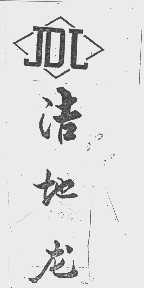 JDL
洁
地
龙